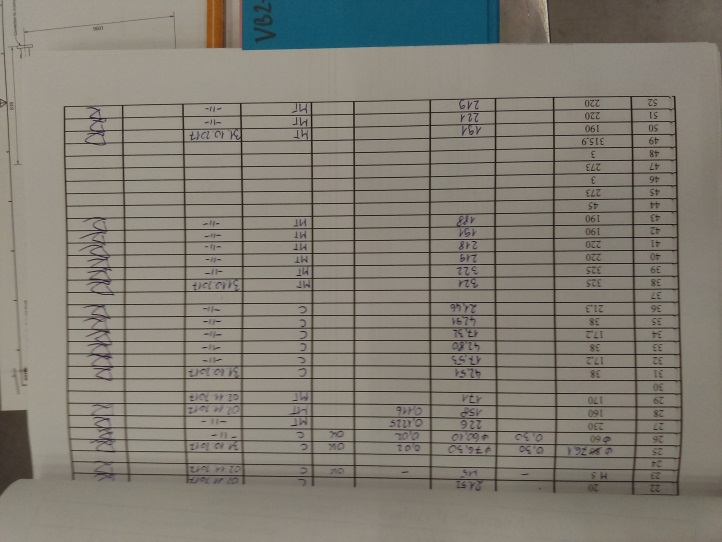 22 20 21.52 C 02 11 2017
23 M5 - M5 - OK C 02 11 2017
24
25 ø 76.1 0,50 ø76,50 0,02 OK C 31 10 2017
26 ø 60 0,50 ø60,10 0,02 OK C -11-
27 230 226 0,1225 MT -11-
28 160 158 0,116 MT 02 11 2017
29 170 171 MT 02 11 2017
30
31 38 42,51 C 31 10 2017
32 17.2 17,53 C -11-
33 38 42,80 C -11-
34 17.2 17,32 C -11-
35 38 42,91 C -11-
36 21.3 21,46 C -11-
37
38 325 321 MT 31 10 2017
39 325 322 MT -11-
40 220 219 MT -11-
41 220 218 MT -11-
42 190 191 MT -11-
43 190 188 MT -11-
44 45
45 273
46 3
47 273
48 3
49 315.9
50 190 191 MT 31 10 2017
51 220 221 MT -11-
52 220 219 MT -11-
VB2-